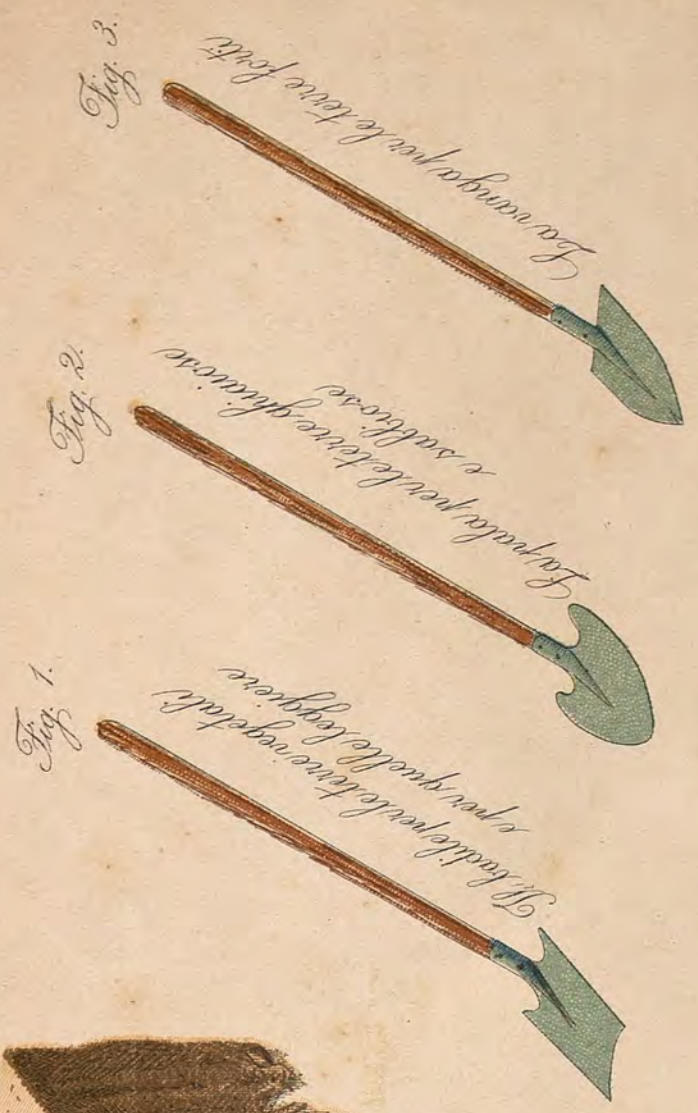 Fig. 1.
Il badile per le terre vegetali
e per quelle leggiere
Fig. 2.
La pala per le terre ghiaiose
e sabbiose
Fig. 3.
La vanga per le terre forti